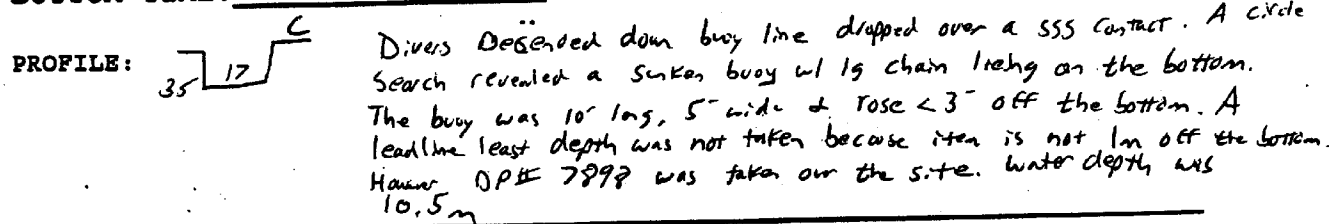 PROFILE:
C
35 17
Divers Descended down buoy line dropped over a SSS contact. A circle
search revealed a sunken buoy w/ lg chain lieing on the bottom.
The buoy was 10' long, 5' wide & rose < 3' off the bottom. A
leadline least depth was not taken because item is not 1m off the bottom.
However DP# 7898 was taken over the site. Water depth was
10.5m